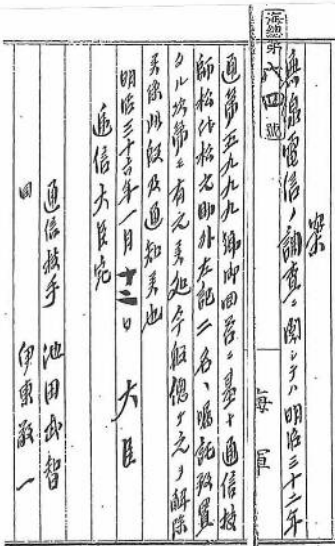 海総第六四號
案
無線電信ノ調査ニ関シテハ明治三十二年
海軍
通第五九九九號御回答ニ基キ通信技
師松代松之助外左記二名ヘ嘱託致置
タル次第ニ有之候処今般總テ之ヲ解除
候條此段及通知候也
明治三十六年一月十二日 大臣
逓信大臣宛
通信技手 池田武智
同 伊東敬一